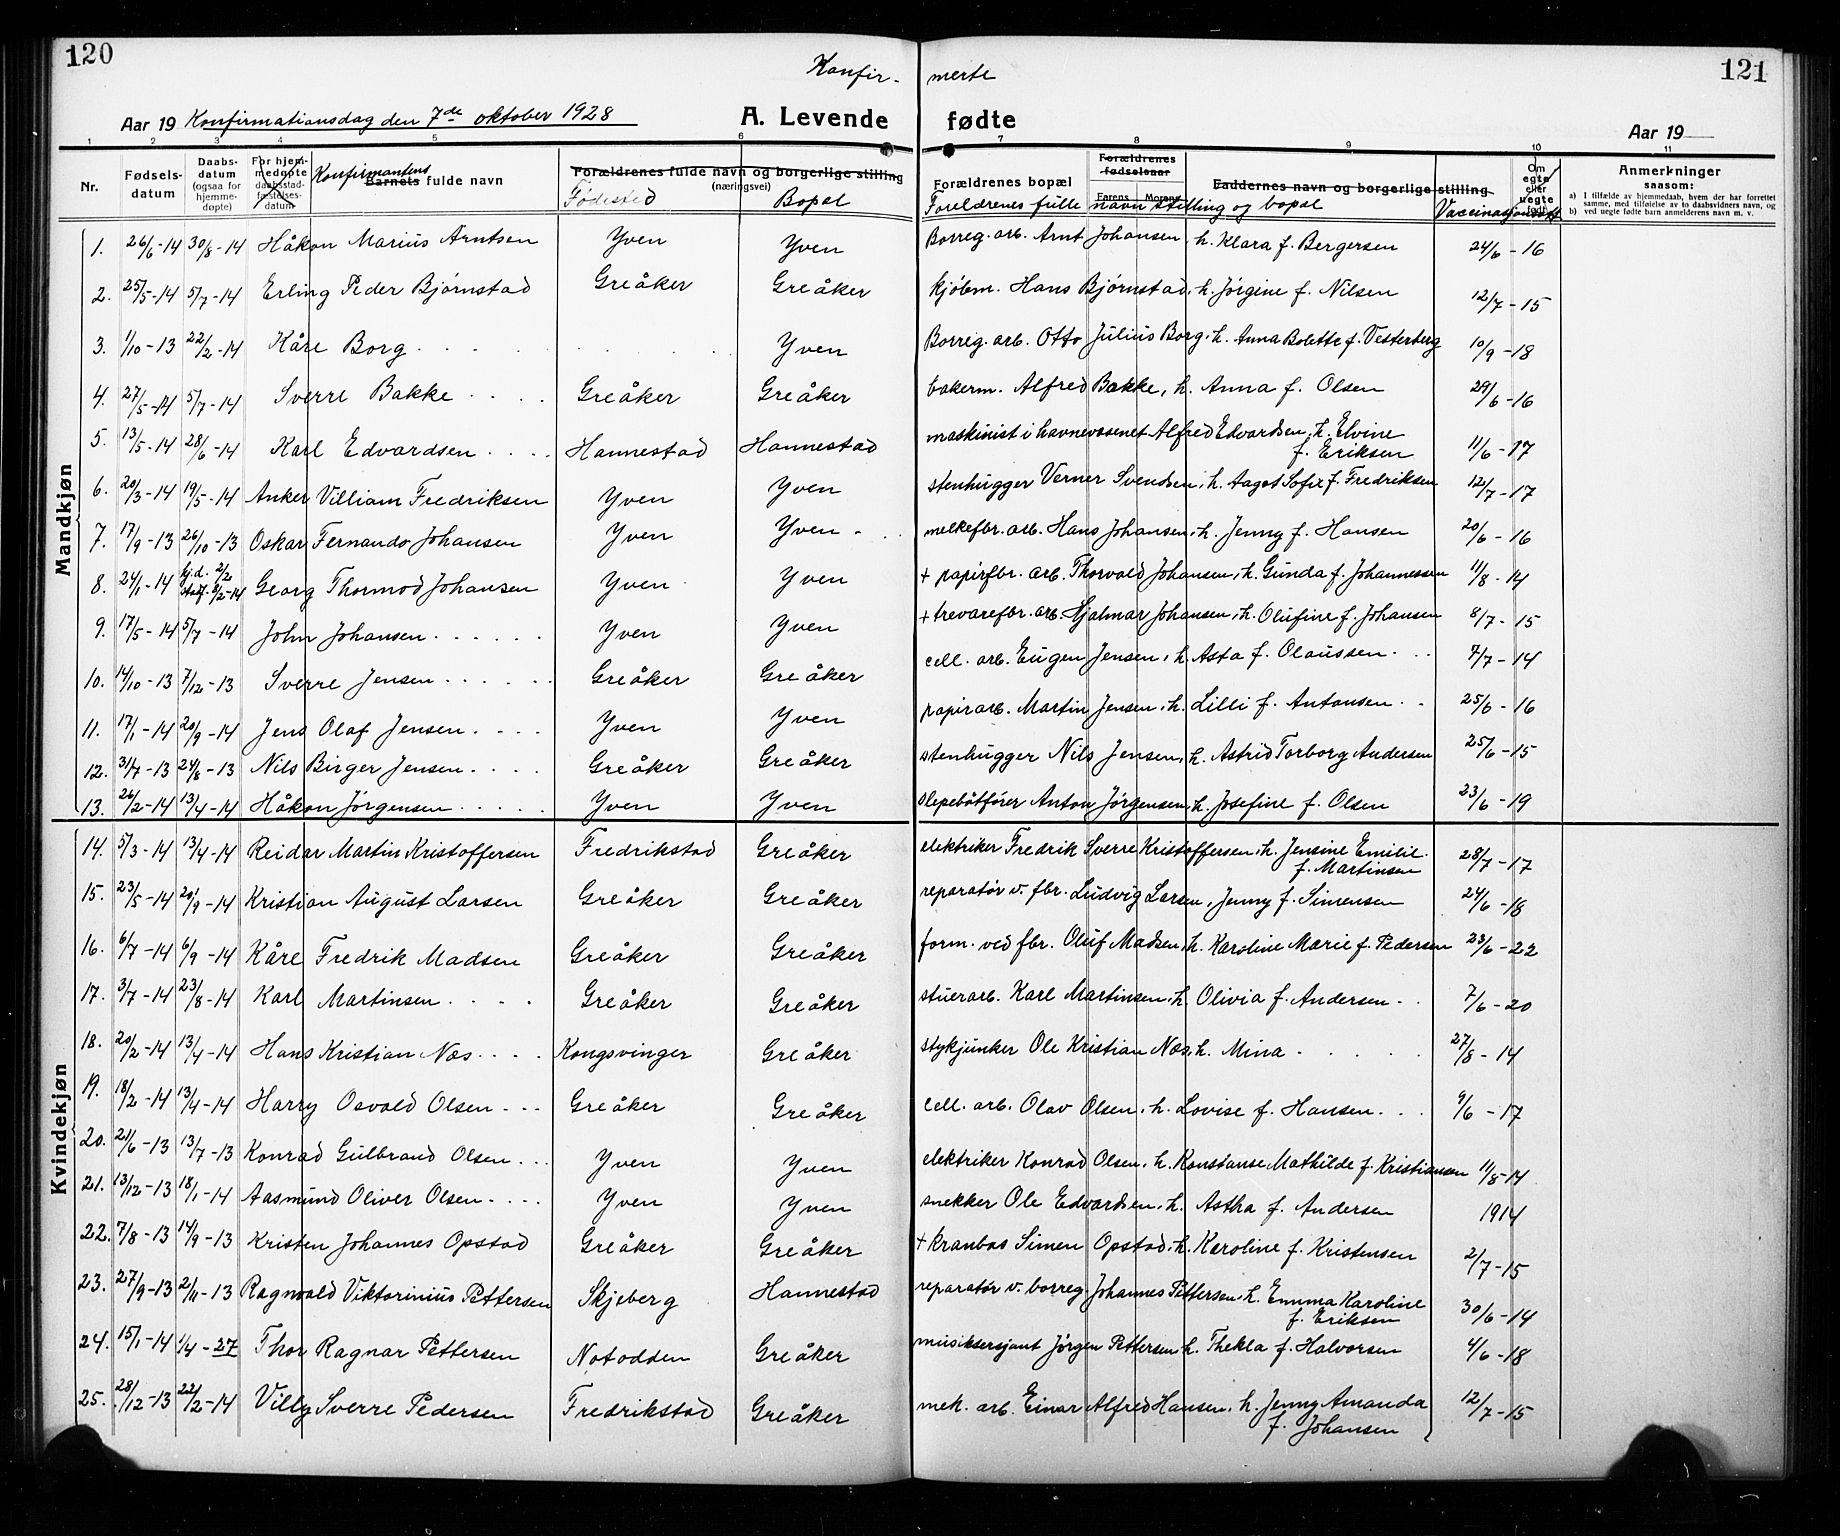 120
121
Konfir- merte
Aar 19 Konfirmationsdag den 7de oktober 1928
A. Levende fødte
Aar 19
1 2 3 4 5 6 7 8 9 10 11
Nr. Fødselsdatum Daabsdatum (ogsaa for hjemmedøpte) For hjemmedøpte daabsstadfæstelsesdatum Konfirmantens Barnets fulde navn Forældrenes fulde navn og borgerlige stilling (næringsvei) Fødested Bopæl Forældrenes bopæl Forældrenes fødselsaar Farens Morens Faddernes navn og borgerlige stilling Foreldrenes fulle navn stilling og bopæl Vaccinasjonsatt Om egte eller uegte født Anmerkninger saasom:
a) I tilfælde av hjemmedaab, hvem der har forrettet samme, med tilføielse av to daabsvidners navn, og
b) ved uegte fødte barn anmelderens navn m. v.
Mandkjøn
1. 26/6-14 30/8-14 Håkon Marius Arntsen Yven Yven Borreg. arb. Arnt Johansen, h. Klara f. Bergersen 24/6-16
2. 25/5-14 5/7-14 Erling Peder Bjørnstad Greåker Greåker kjøbm. Hans Bjørnstad, h. Jørgine f. Nilsen 12/7-15
3. 1/10-13 22/2-14 Kåre Borg . . . . Yven Borreg. arb. Otto Julius Borg, h. Anna Bolette f. Vesterberg 10/9-18
4. 27/5-14 5/7-14 Sverre Bakke . . . . Greåker Greåker bakerm. Alfred Bakke, h. Anna f. Olsen 29/6-16
5. 13/5-14 28/6-14 Karl Edvardsen . . . . Hannestad Hannestad maskinist i havnevæsenet Alfred Edvardsen, h. Elvine
f. Eriksen 11/6-17
6. 20/3-14 19/5-14 Anker Villiam Fredriksen Yven Yven stenhugger Verner Svendsen, h. Aagot Sofie f. Fredriksen 12/7-17
7. 17/9-13 26/10-13 Oskar Fernando Johansen Yven Yven melkefbr. arb. Hans Johansen, h. Jenny f. Hansen 20/6-16
8. 24/1-14 hj.d. 2/2 stadf. 8/2-14 Georg Thormod Johansen Yven Yven + papirfbr. arb. Thorvald Johansen, h. Gunda f. Johannessen 11/8-14
9. 17/5-14 5/7-14 John Johansen . . . . . . Yven Yven + trevarefbr. arb. Hjalmar Johansen, h. Olufine f. Johansen 8/7-15
10. 14/10-13 7/12-13 Sverre Jensen . . . . . . Greåker Greåker cell. arb. Eugen Jensen, h. Asta f. Olaussen . . . 7/7-14
11. 17/1-14 20/9-14 Jens Olaf Jensen . . . . Yven Yven papirarb. Martin Jensen, h. Lilli f. Antonsen . . 25/6-16
12. 31/7-13 24/8-13 Nils Birger Jensen . . . . Greåker Greåker stenhugger Nils Jensen, h. Astrid Torborg Andersen 25/6-15
13. 26/2-14 13/4-14 Håkon Jørgensen . . . . . Yven Yven slepebåtfører Anton Jørgensen, h. Josefine f. Olsen 23/6-19
Kvindekjøn
14. 5/3-14 13/4-14 Reidar Martin Kristoffersen Fredrikstad Greåker elektriker Fredrik Sverre Kristoffersen, h. Jensine Emilie
f. Martinsen 28/7-17
15. 23/5-14 20/9-14 Kristian August Larsen Greåker Greåker reparatør v. fbr. Ludvig Larsen, Jenny f. Simensen 24/6-18
16. 6/7-14 6/9-14 Kåre Fredrik Madsen Greåker Greåker form. ved fbr. Oluf Madsen, h. Karoline Marie f. Pedersen 23/6-22
17. 3/7-14 23/8-14 Karl Martinsen . . . . Greåker Greåker stuerarb. Karl Martinsen, h. Olivia f. Andersen . . 7/6-20
18. 20/2-14 13/4-14 Hans Kristian Næs . . . . Kongsvinger Greåker stykjunker Ole Kristian Næs, h. Mina . . . . . 27/8-14
19. 18/2-14 13/4-14 Harry Osvald Olsen . . . Greåker Greåker cell. arb. Olav Olsen, h. Lovise f. Hansen . . . 9/6-17
20. 21/6-13 13/7-13 Konrad Gulbrand Olsen . . . Yven Yven elektriker Konrad Olsen, h. Konstanse Mathilde f. Kristiansen 11/8-14
21. 13/12-13 18/1-14 Aasmund Oliver Olsen . . . . Yven Yven snekker Ole Edvardsen, h. Astha f. Andersen 1914
22. 7/8-13 14/9-13 Kristen Johannes Opstad Greåker Greåker + kranbas Simen Opstad, h. Karoline f. Kristensen 2/7-15
23. 27/9-13 2/11-13 Ragnvald Viktorinius Pettersen Skjeberg Hannestad reparatør v. borreg. Johannes Pettersen, h. Emma Karoline
f. Eriksen 30/6-14
24. 15/1-14 1/4-27 Thor Ragnar Pettersen Notodden Greåker musiksersjant Jørgen Pettersen, h. Thekla f. Halvorsen 4/6-18
25. 28/12-13 22/2-14 Villy Sverre Pedersen Fredrikstad Greåker mek. arb. Einar Alfred Hansen, h. Jenny Amanda
f. Johansen 12/7-15